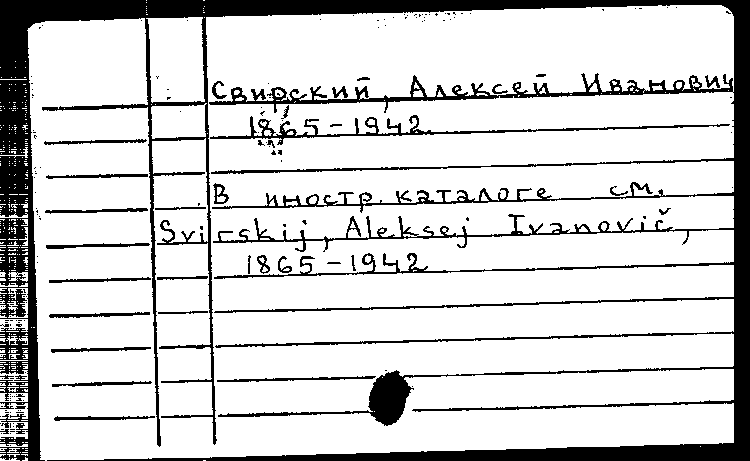 Свирский, Алексей Иванович
1865-1942.
В иностр. каталоге см.
Svirskij, Aleksej Ivanovič,
1865-1942